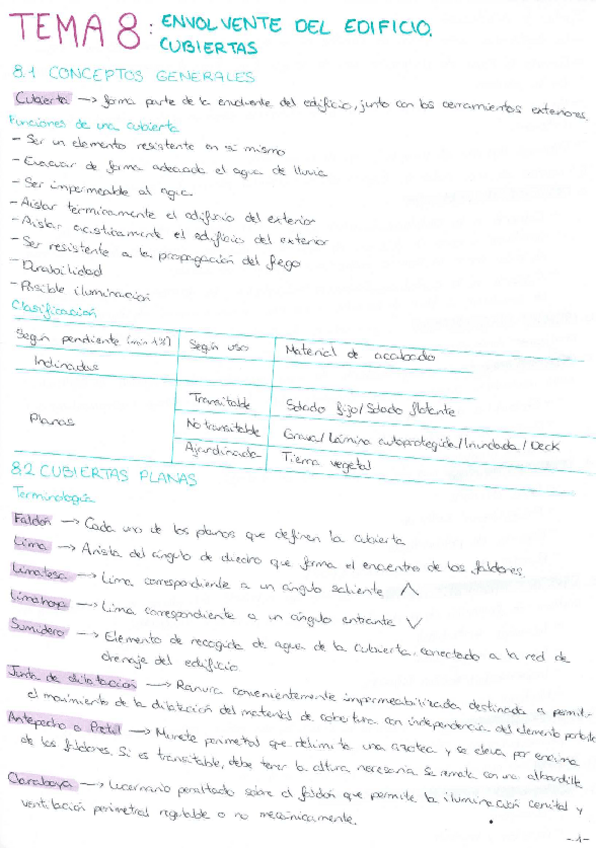 TEMA 8: ENVOLVENTE DEL EDIFICIO.
CUBIERTAS
8.1 CONCEPTOS GENERALES
Cubierta → forma parte de la envolvente del edificio, junto con los cerramientos exteriores.
Funciones de una cubierta
- Ser un elemento resistente en si mismo
- Evacuar de forma adecuada el agua de lluvia
- Ser impermeable al agua
- Aislar térmicamente el edificio del exterior
- Aislar acústicamente el edificio del exterior
- Ser resistente a la propagación del fuego
- Durabilidad
- Posible iluminación
Clasificación
Según pendiente (min 1%) Según uso Material de acabado
Inclinadas
Transitable Solado fijo/Solado flotante
Planas No transitable Grava/Lámina autoprotegida/Inundada/Deck
Ajardinada Tierra vegetal
8.2 CUBIERTAS PLANAS
Terminología
Faldón → Cada uno de los planos que definen la cubierta
Lima → Arista del ángulo de diedro que forma el encuentro de los faldones.
Limatesa → Lima correspondiente a un ángulo saliente ∧
Limahoya → Lima correspondiente a un ángulo entrante ∨
Sumidero → Elemento de recogida de agua de la cubierta, conectado a la red de
drenaje del edificio.
Junta de dilatación → Ranura convenientemente impermeabilizada destinada a permitir
el movimiento de la dilatación del material de cobertura con independencia del elemento portante
Antepecho o Pretil → Murete perimetral que delimita una azotea y se eleva por encima
de los faldones. Si es transitable, debe tener la altura necesaria. Se remata con una albardilla
Claraboya → Lucernario peraltado sobre el faldón que permite la iluminación cenital y
ventilación perimetral regulable o no mecánicamente.
-1-